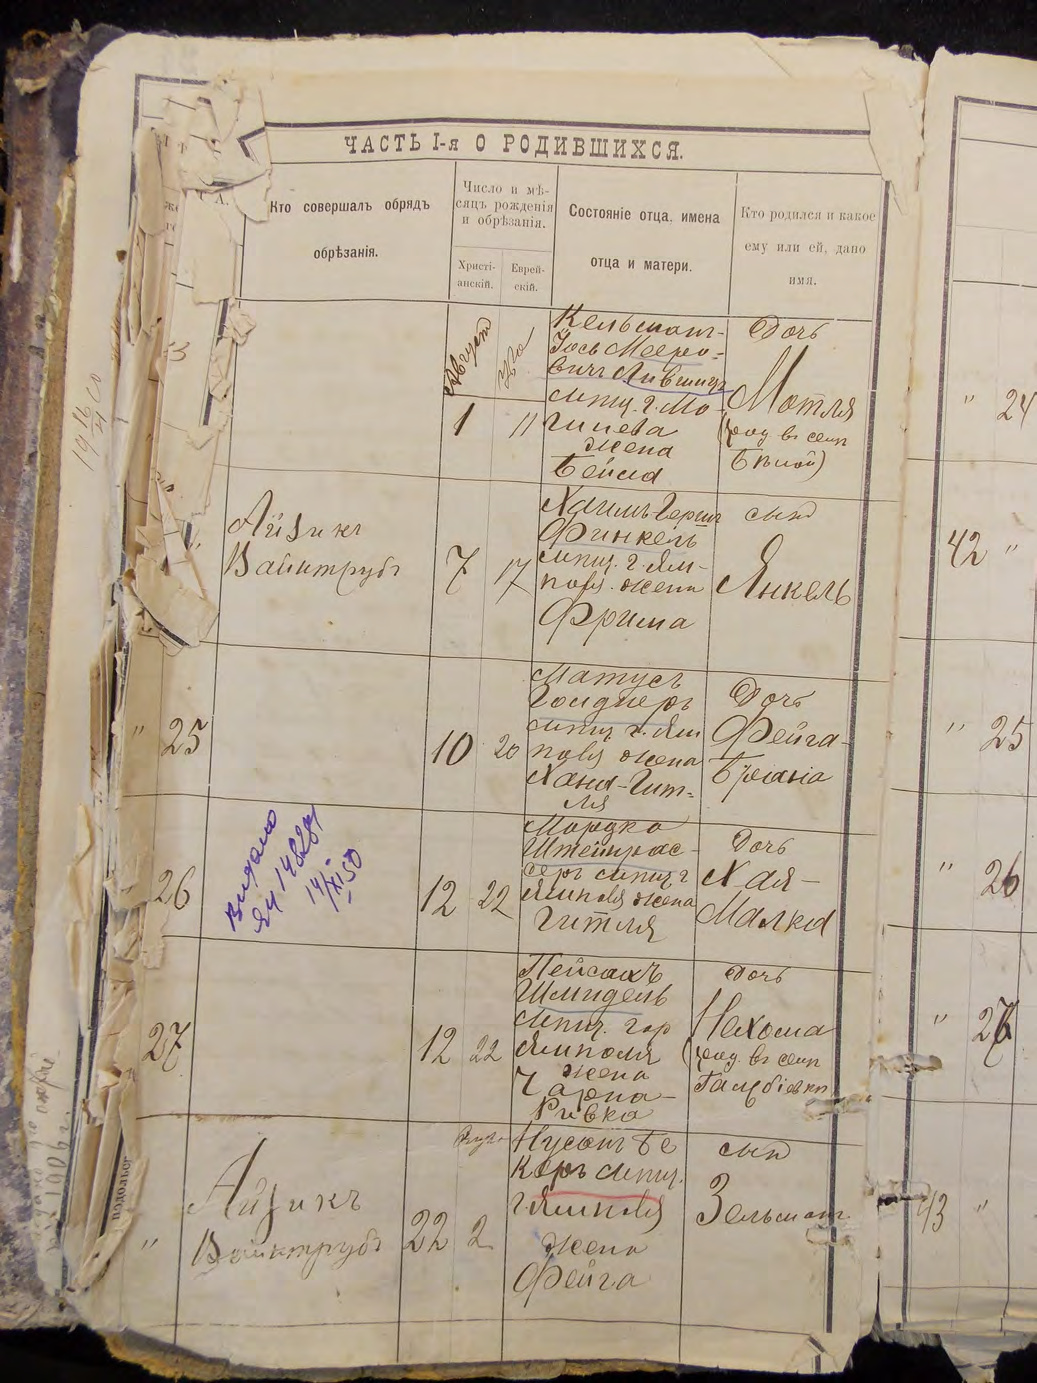 ЧАСТЬ I-я О РОДИВШИХСЯ.
Кто совершалъ обрядъ
обрѣзанія.
Число и мѣ-
сяцъ рожденія
и обрѣзанія.
Христі-
анскій.
Еврей-
скій.
Состояніе отца, имена
отца и матери.
Кто родился и какое
ему или ей, дано
имя.
Августъ
1
11
Кельманъ-
Іось Мееро-
вичъ Лившицъ
мѣщ. г. Мо
гилева
жена
Бейла
Дочь
Мотля
(род въ сел
" 24
Айзикъ
Вайнтрубъ
7
17
Хаимъ-Герш
Финкель
мѣщ. г. Ям-
поля. жена
Фрима
сынъ
Янкель
42 "
" 25
10
20
Матусъ
мѣщ г. Ям
поля жена
Хана-Гит-
ля
Дочь
Фейга-
" 25
26
Видано
14/XI 50
12
22
Мордко
мѣщ г
Ямполя жена
Гитля
Дочь
Хая-
Малка
" 26
27
12
22
Пейсахъ
Шмидель
мѣщ. гор
Ямполя
жена
Чарна-
Ривка
дочь
Нехома
(род. въ сел
" 27
"
Айзикъ
Вайнтрубъ
22
2
Нусонъ Бе
керъ мѣщ.
г Ямполя
жена
Фейга
сынъ
Зельманъ
43 "